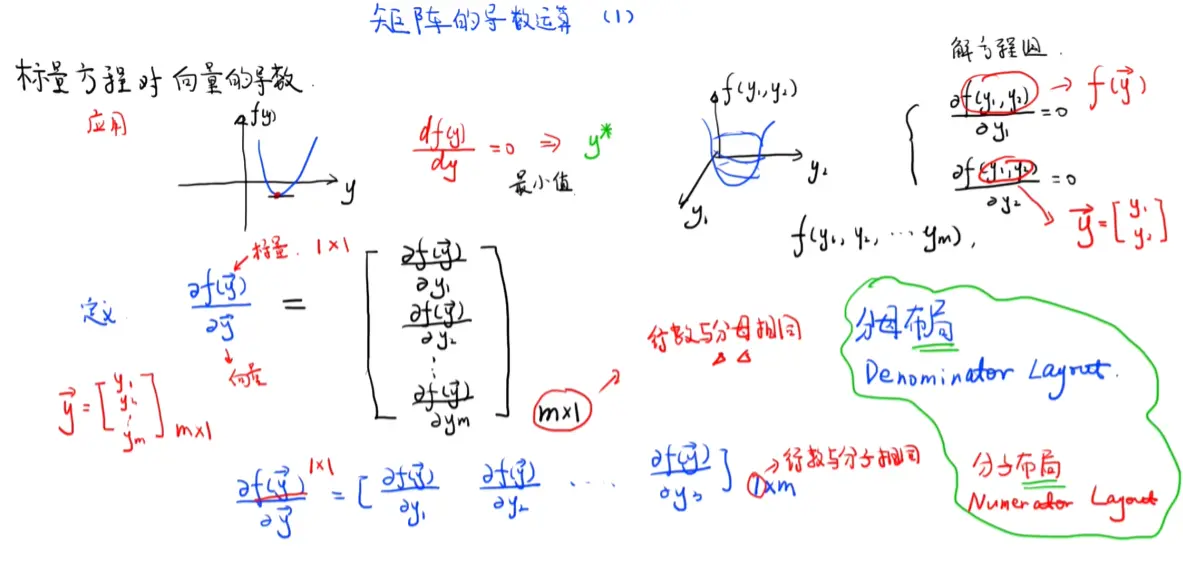 矩阵的导数运算 (1)
标量方程对向量的导数.
应用
f(y)
y
df(y)/dy = 0 ⇒ y*
最小值
f(y₁,y₂)
y₂
y₁
解方程组.
∂f(y₁,y₂)/∂y₁ = 0 → f(y⃗)
∂f(y₁,y₂)/∂y₂ = 0
y⃗ = [y₁ y₂]
f(y₁, y₂, ⋯ yₘ),
标量. 1×1
定义 ∂f(y⃗)/∂y⃗ = [∂f(y⃗)/∂y₁ ∂f(y⃗)/∂y₂ ⋮ ∂f(y⃗)/∂yₘ] m×1
向量
y⃗ = [y₁ y₂ ⋮ yₘ] m×1
行数与分母相同
分母布局
Denominator Layout.
∂f(y⃗)/∂y⃗ 1×1 = [∂f(y⃗)/∂y₁ ∂f(y⃗)/∂y₂ ⋯ ∂f(y⃗)/∂y₃] 1×m
行数与分子相同
分子布局
Numerator Layout